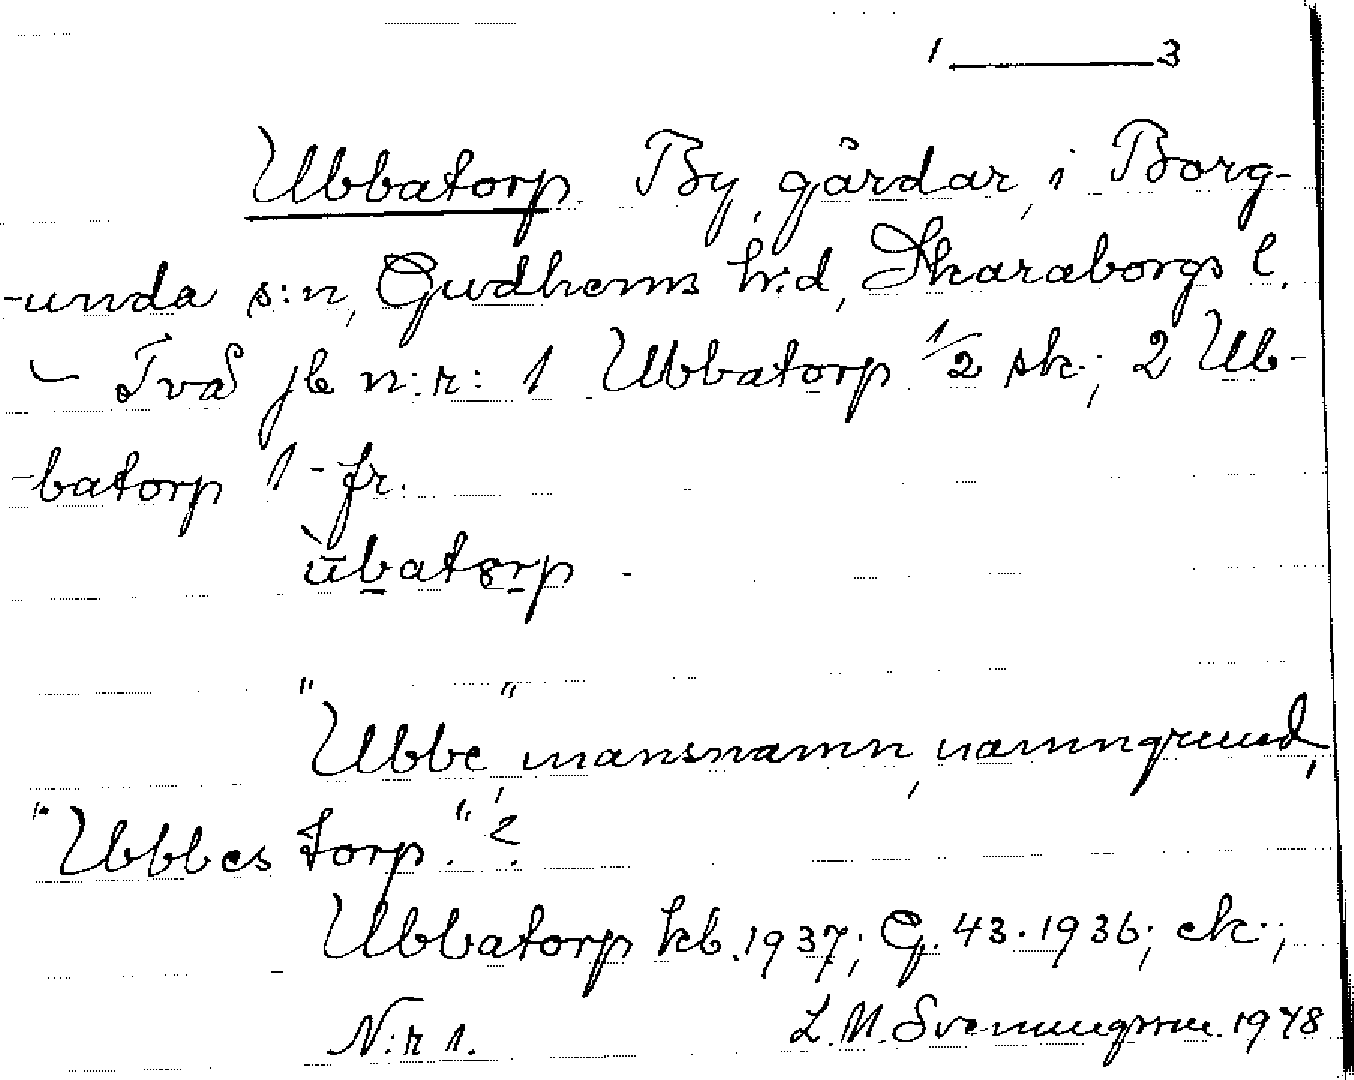 1 — 3
Ubbatorp By, gårdar, i Borg-
-unda s:n, Gudhems h:d, Skaraborgs l.
— Två jb n:r: 1 Ubbatorp 1/2 sk.; 2 Ub-
-batorp 1 - fr.
ùbatorp -
"Ubbe", mansnamn, namngrund,
"Ubbes torp." ?
Ubbatorp kb. 1937; G. 43. 1936; ek.;
N:r 1. L. M. Svenungsson. 1948